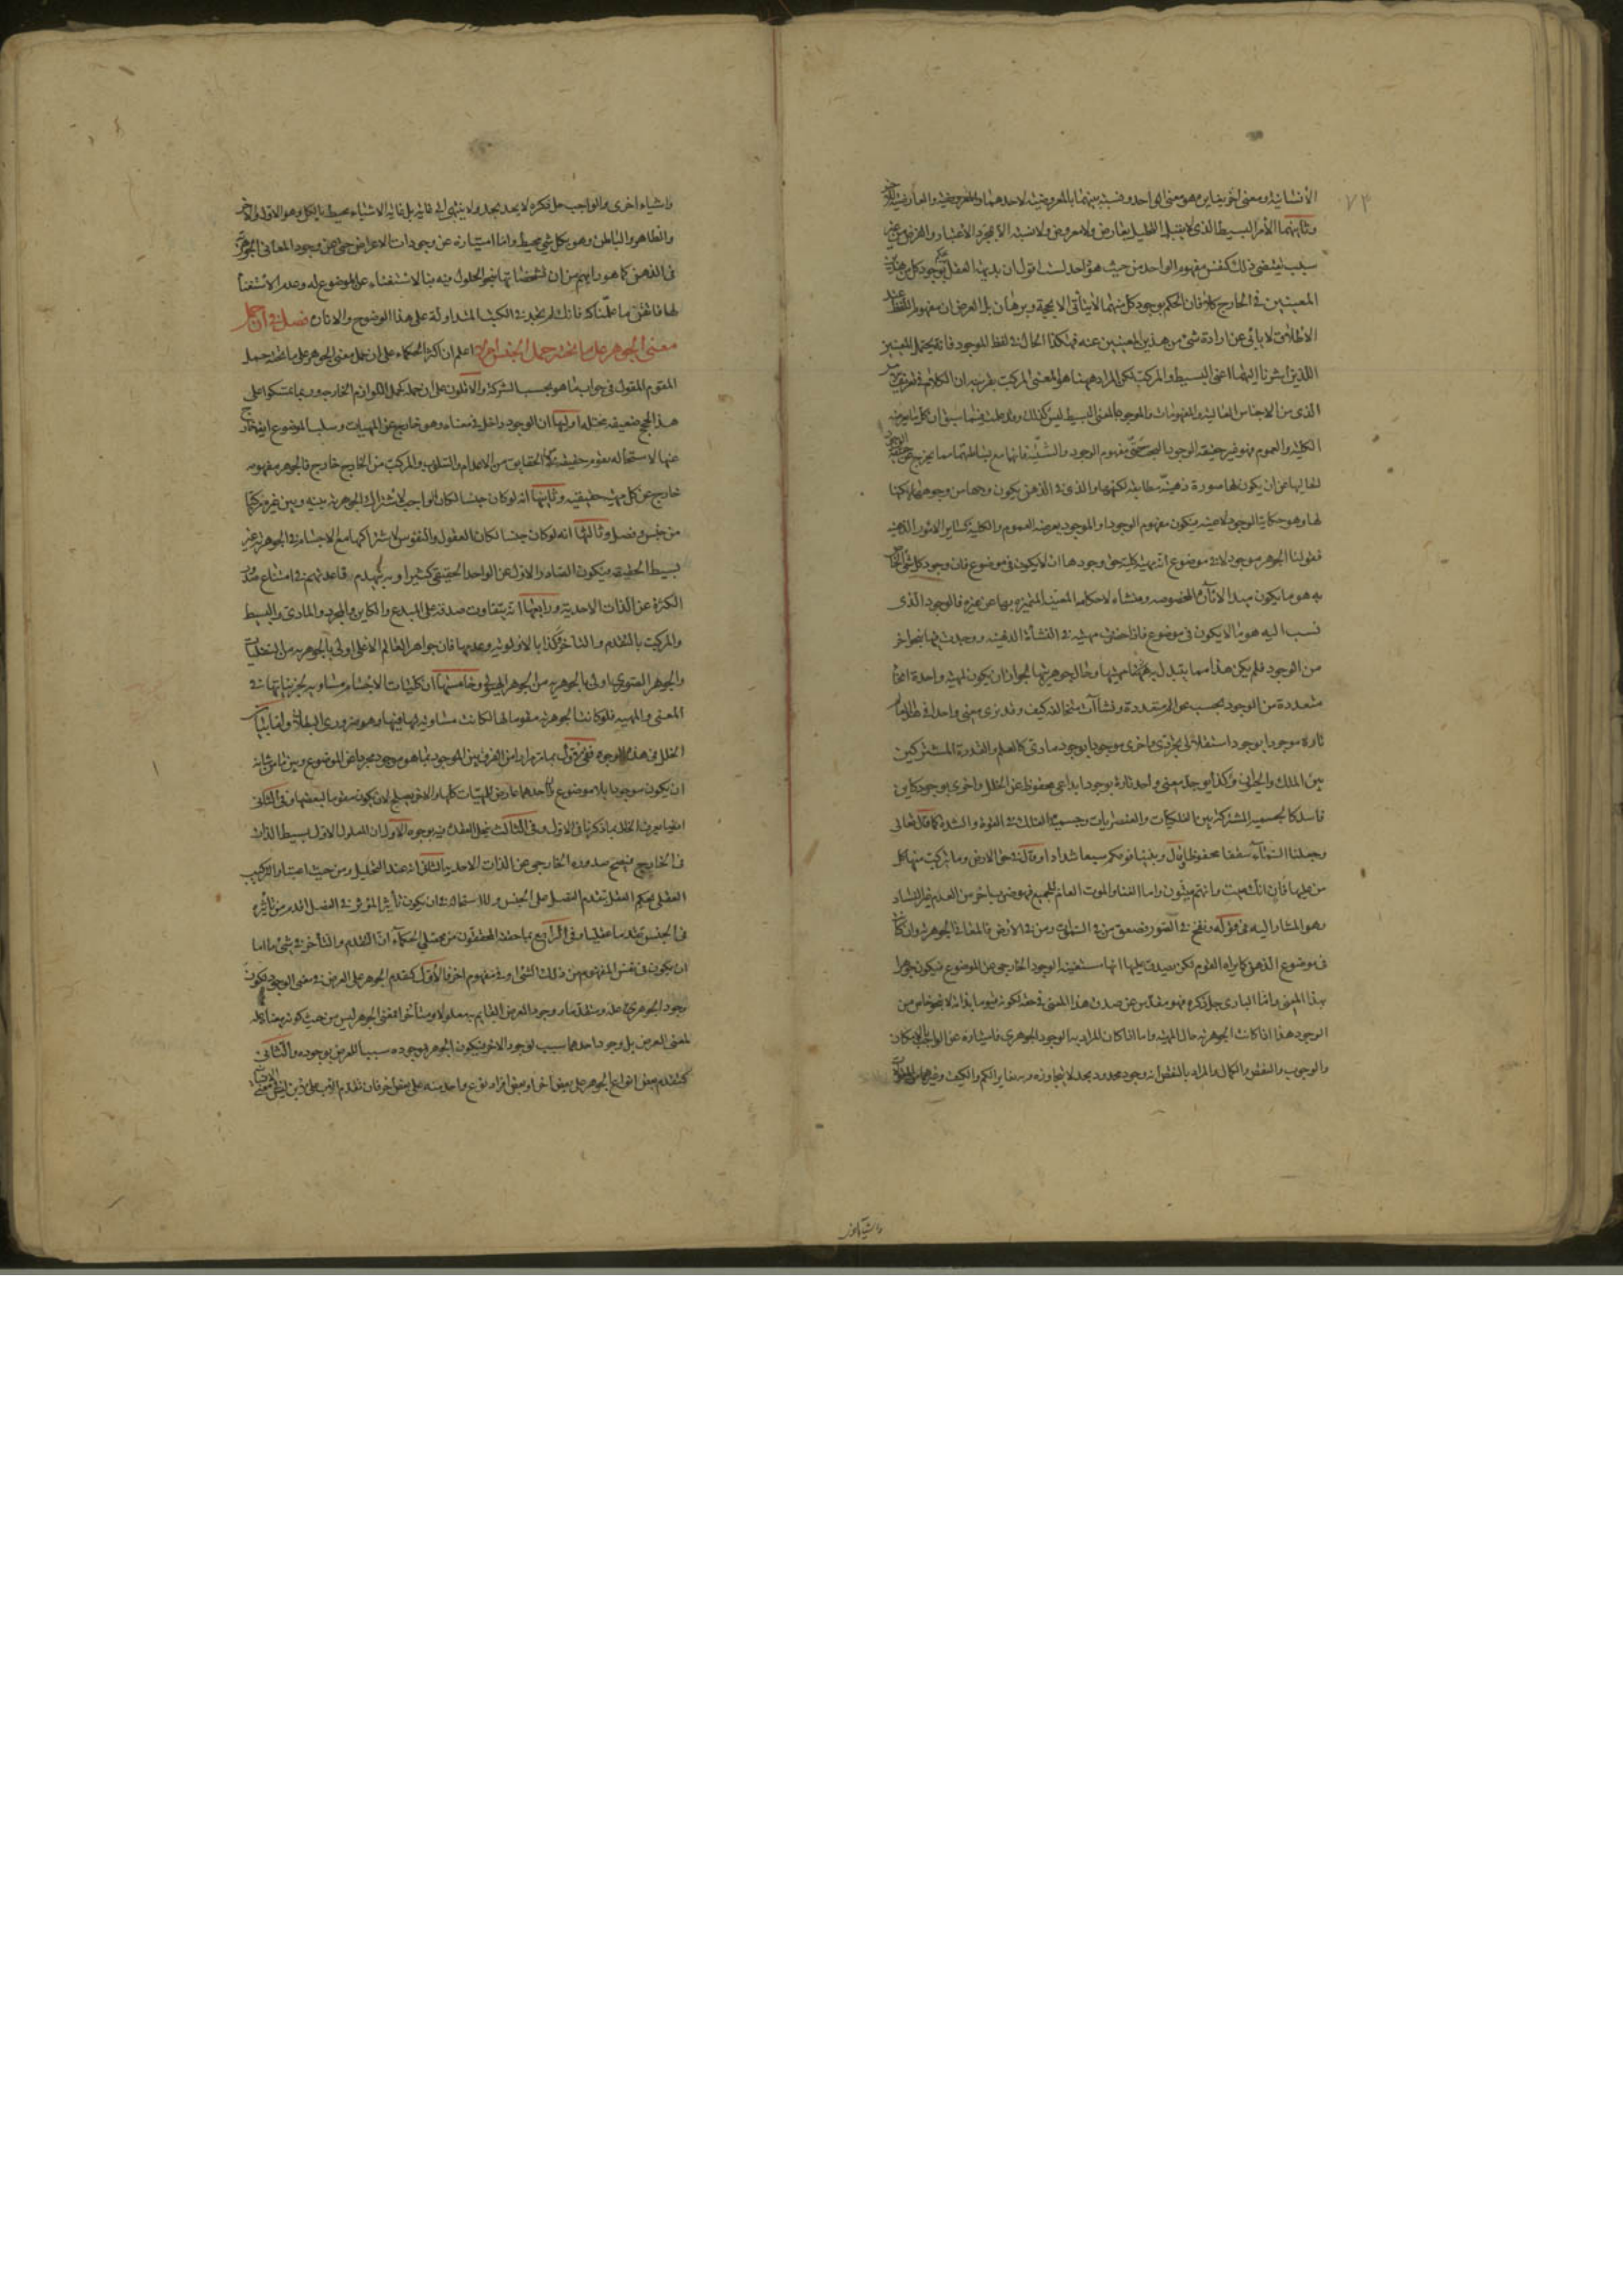 ٧٣
الانسانية ومعنى اخر يغايره هو معنى الواحد ونسبة بينهما بالمعروضية لاحدهما والعارضية للآخر
وثانيهما الأمر البسيط الذى لا يقبل التحليل بعارض ومعروض ولا نسبة الا بمجرد الاعتبار والفرض من غير
سبب يقتضى ذلك كنفس مفهوم الواحد من حيث هو واحد لست اقول ان بديهة العقل يحكم بوجود كل من هذين
المعنيين فى الخارج كلا فان الحكم بوجود كل منهما لا يتأتى الا بحجة وبرهان بل الغرض ان مفهوم اللفظ عند
الاطلاق لا يابى عن ارادة شئ من هذين المعنيين عنه فهكذا الحال فى لفظ الموجود فانه يحتمل المعنيين
اللذين اشرنا اليهما اعنى البسيط والمركب لكن المراد ههنا هو المعنى المركب بقرينة ان الكلام فى تعريف
الذى من الاجناس العالية والمفهومات والموجود بالمعنى البسيط ليس كذلك وقد علمت فيما سبق ان كل ما يعرضه
الكلية والعموم فهو غير حقيقة الوجود البحت حتى مفهوم الوجود والشيئية فانها مع بساطتهما مما يخرج عن حقيقة الوجود
لها وهو حكاية الوجود لا عينه فيكون مفهوم الوجود او الموجود يعرضه العموم والكلية كسائر الامور الذهنية
فقولنا الجوهر موجود لا فى موضوع انه مهية كلية حق وجودها ان لا يكون فى موضوع فان وجود كل شئ
به هو ما يكون مبدا لآثاره المخصوصة ومنشاء لاحكامه المعينة المتميزة بها عن غيره فالوجود الذى
نسب اليه هو ما لا يكون فى موضوع فاذا حققت مهيته فى النشأة الذهنية ووجدت فيها بنحو اخر
من الوجود فلم يكن هذا مما يتبدل به مهيتها وحال جوهريتها لجواز ان يكون لمهية واحدة انحاء
متعددة من الوجود بحسب عوالم متعددة ونشآت متخالفة كيف وقد نرى معنى واحدا فى هذا العالم
تارة موجودا بوجود استقلالى تجردى واخرى موجودا بوجود مادى كالعلم والقدرة المشتركين
بين الملك والحيوان وكذا يوجد معنى واحد تارة بوجود ابداعى محفوظ عن الخلل واخرى بوجود كاين
فاسد كالجسمية المشتركة بين الفلكيات والعنصريات وجسمية الفلك فى القوة والشدة كما قال تعالى
وجعلنا السماء سقفا محفوظا وقال وبنينا فوقكم سبعا شدادا وقال فى حق الارض وما تركب منها كل
من عليها فان انك ميت وانهم ميتون واما الفناء والموت العام للجميع فهو ضرب اخر من العدم غير الفساد
وهو المشار اليه فى قوله ونفخ فى الصور فصعق من فى السموات ومن فى الارض فالمعانى الجوهرية وان كانت
فى موضوع الذهن كما يراه القوم لكن يصدق عليها انها مستغنية الوجود الخارجى عن الموضوع فيكون جوهرا
بهذا المعنى واما البارى جل ذكره فهو مقدس عن صدق هذا المعنى فى حقه لكونه قيوما بذاته لا بنحو خاص من
الوجود هذا اذا كانت الجوهرية حال المهية واما اذا كان المراد به الوجود الجوهرى فامتيازه عن الواجب بالامكان
والوجوب والنقص والكمال والمراد بالنقص انه وجود محدود بحد لا يتجاوزه وبه يغاير الكم والكيف وغيرهما من
واشياء اخرى
واشياء اخرى والواجب جل ذكره لا يحد بحد ولا ينتهى الى غاية بل غاية الاشياء محيط بالكل وهو الاول والاخر
والظاهر والباطن وهو بكل شئ محيط واما امتيازه عن وجودات الاعراض حتى عن وجود المعانى الجوهرية
فى الذهن كما هو رايهم من ان تشخصاتها بنحو الحلول فيه فبالاستغناء عن الموضوع له وعدم الاستغناء
لها فاتقن ما علمناكه فانك لم تجد فى الكتب المتداولة على هذا الوضوح والاتقان فصل فى ان حمل
معنى الجوهر على ما تحته حمل الجنس ام لا اعلم ان اكثر الحكماء على ان حمل معنى الجوهر على ما تحته حمل
المقوم المقول فى جواب ما هو بحسب الشركة والاقلون على ان حمله كحمل اللوازم الخارجية وربما تمسكوا على
هذا بحجج ضعيفة مختلة اولها ان الوجود داخل فى معناه وهو خارج عن المهيات وسلب الموضوع ايضا خارج
عنها لاستحالة تقوم حقيقة من الحقايق من الاعدام والسلوب والمركب من الخارج خارج فالجوهر بمفهومه
خارج عن كل مهية حقيقية وثانيها انه لو كان جنسا لكان الواجب لاشتراك الجوهرية بينه وبين غيره مركبا
من جنس وفصل وثالثها انه لو كان جنسا لكان العقول والنفوس لاشتراكها مع الاجسام فى الجوهرية غير
بسيط الحقيقة فيكون الصادر الاول عن الواحد الحقيقى كثيرا وبه ينهدم قاعدتهم فى امتناع صدور
الكثرة عن الذات الاحدية ورابعها انه يتفاوت صدقه على المبدع والكاين والمجرد والمادى والبسيط
والمركب بالتقدم والتأخر وكذا بالاولوية وعدمها فان جواهر العالم الاعلى اولى بالجوهرية من
والجوهر الصورى اولى بالجوهرية من الجوهر الهيولى وخامسها ان كليات الاجسام مساوية لجزئياتها فى
المعنى والمهية فلو كانت الجوهرية مقومة لها لكانت مساوية لها فيها وهو ضرورى البطلان واما بيان
الخلل فى هذه الوجوه ففى الاول بما مر مرارا من الفرق بين الموجود بما هو موجود مجردا عن الموضوع وبين ما من شأنه
ان يكون موجودا بلا موضوع واحدهما عارض للمهيات كلها والاخر يصلح لان يكون مقوما لبعضها وفى الثانى
ايضا يعرف الخلل بما ذكرنا فى الاول وفى الثالث نحل العقدة فيه بوجوه الاول ان المعلول الاول بسيط الذات
فى الخارج فيصح صدوره الخارجى عن الذات الاحدية الثانى انه عند التحليل ومن حيث اعتبار التركيب
العقلى يحكم العقل بتقدم الفصل على الجنس ولا استحالة فى ان يكون تأثير المؤثر فى الفصل اقدم من تأثيره
فى الجنس تقدما عقليا وفى الرابع بما حققه المحققون من محصلى الحكماء ان التقدم والتأخر فى شئ ما اما
ان يكون فى نفس المفهوم من ذلك الشئ او فى مفهوم اخر فالاول كتقدم الجوهر على العرض فى معنى الوجود فكون
وجود الجوهرى علة ومتقدما ووجود العرض القايم به معلولا ومتأخرا فمعنى الجوهر ليس من حيث كونه معناه علة
لمعنى العرض بل وجود احدهما سبب لوجود الاخر فيكون الجوهر بوجوده سببا للعرض بوجوده والثانى
كتقدم بعض انواع الجوهر على بعض اخر او بعض افراد نوع واحد منه على بعض اخر فان تقدم الاب على الابن ليس فى معنى